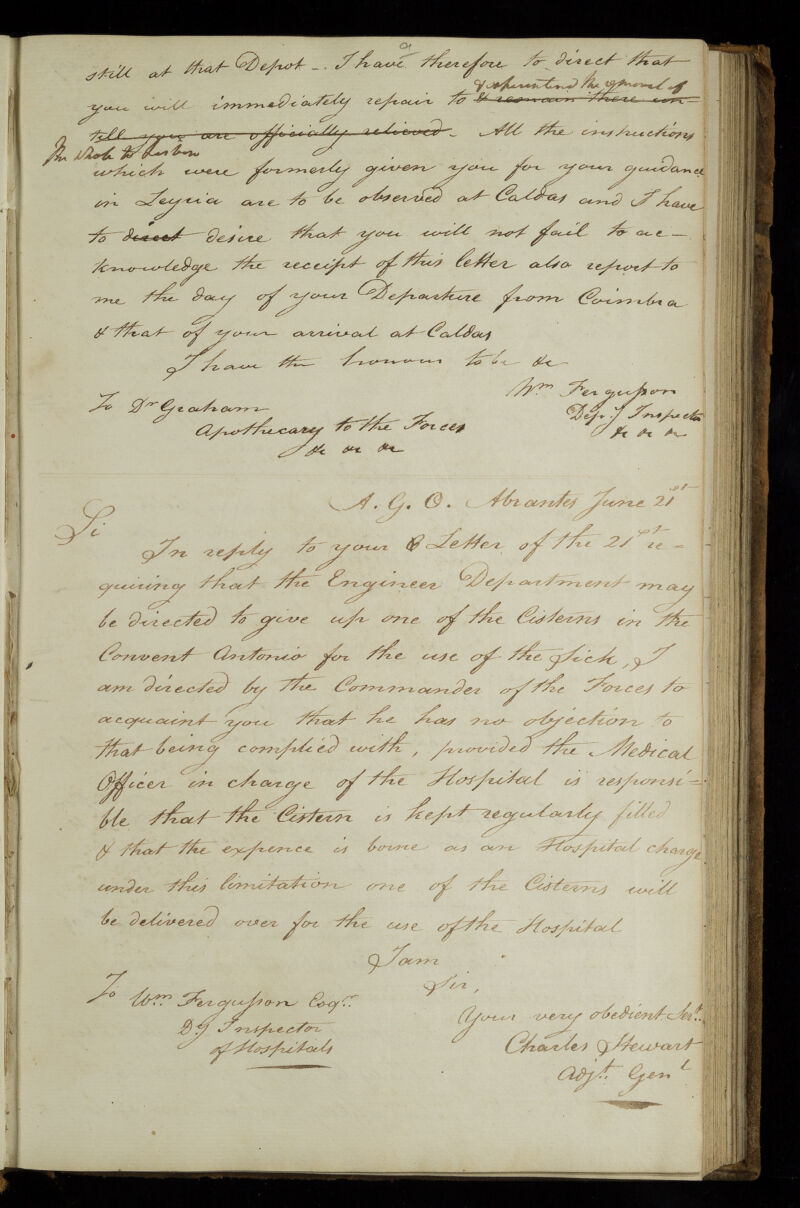 still at that Depot - I have therefore to direct that
& superintend the removal of
you will immediately repair to & remain there un-
till you are officially relieved - All the instructions
the whole to Lisbon
which were formerly given you for your guidance
in Leyria are to be observed at Caldas and I have
to direct desire that you will not fail to ac-
knowledge the receipt of this letter also report to
me the day of your Departure from Coimbra
& that of your arrival at Caldas
I have the honour to be &c
Wm Fergusson
Depy Inspector
&c &c &c
To Dr Graham
Apothecary to the Forces
&c &c &c
A. G. O. Abrantes June 21st
Si
In reply to your Letter of the 21st re-
quiring that the Engineer Department may
be directed to give up one of the Cisterns in the
Convent Antonio for the use of the Sick, I
am directed by the Commander of the Forces to
acquaint you that he has no objection to
that being complied with, provided the Medical
Officer in charge of the Hospital is responsi=
ble that the Cistern is kept regularly filled
& that the expence is borne as an Hospital charge
under this limitation one of the Cisterns will
be delivered over for the use of the Hospital
I am
Sir,
Your very obedient Sert.
Charles Stewart
Adjt. Genl
To Wm Fergusson Esqr.
Dy Inspector
of Hospitals